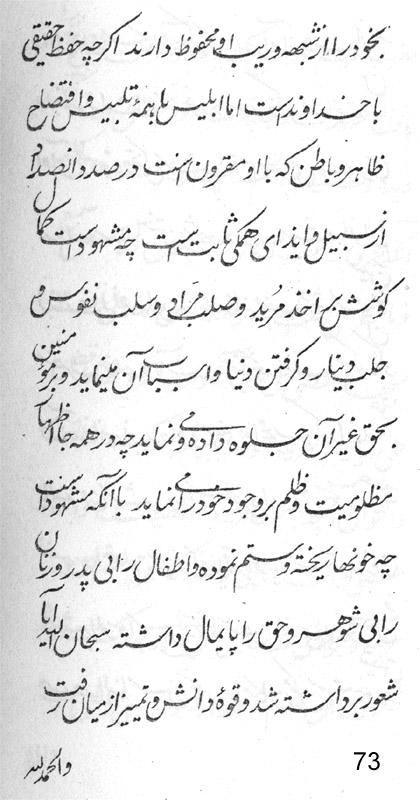 بخود را از شبهه و ریب او محفوظ دارند اگرچه حفظ حقیقی
با خداوند است اما ابلیس با همهٔ تلبیس و افتضاح
ظاهر و باطن که با او مقرون است در صدد انصداد
از سبیل و ایذای همگی ثابت است چه مشهود است کمال
کوشش بر اخذ مرید و صلب مراد و سلب نفوس و
جلب دینار و گرفتن دنیا و اسباب آن مینماید و بر مؤمنین
بحق غیر آن جلوه داده می و نماید چه در همه جا اظهار
مظلومیت و ظلم بر وجود خود را می نماید با آنکه مشهود است
چه خونها ریخته و ستم نموده و اطفال را بی پدر و زنان
را بی شوهر و حق را پایمال داشته سبحان الله آیا
شعور برداشته شد و قوهٔ دانش و تمییز از میان رفت
والحمد لله
73